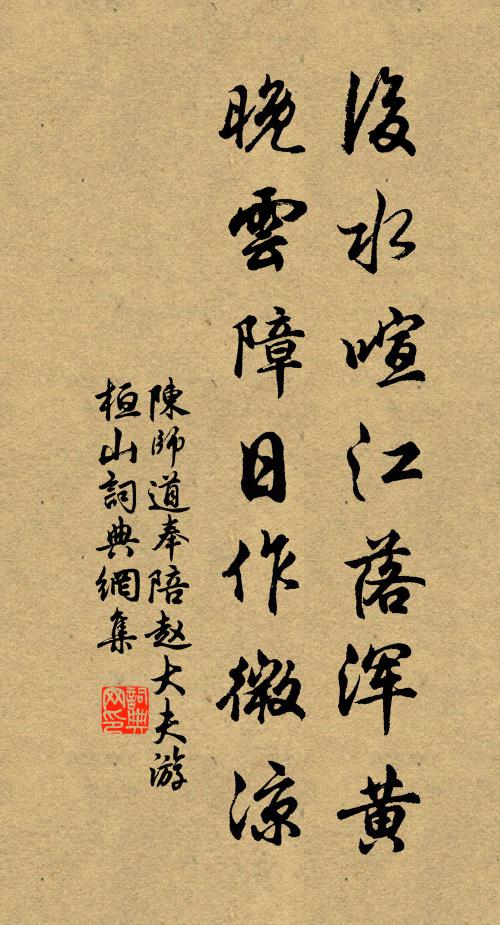 後水喧江落浑黄
晚雲障日作微凉
陳師道奉陪赵大夫游
桓山詞典網集
詞典网印